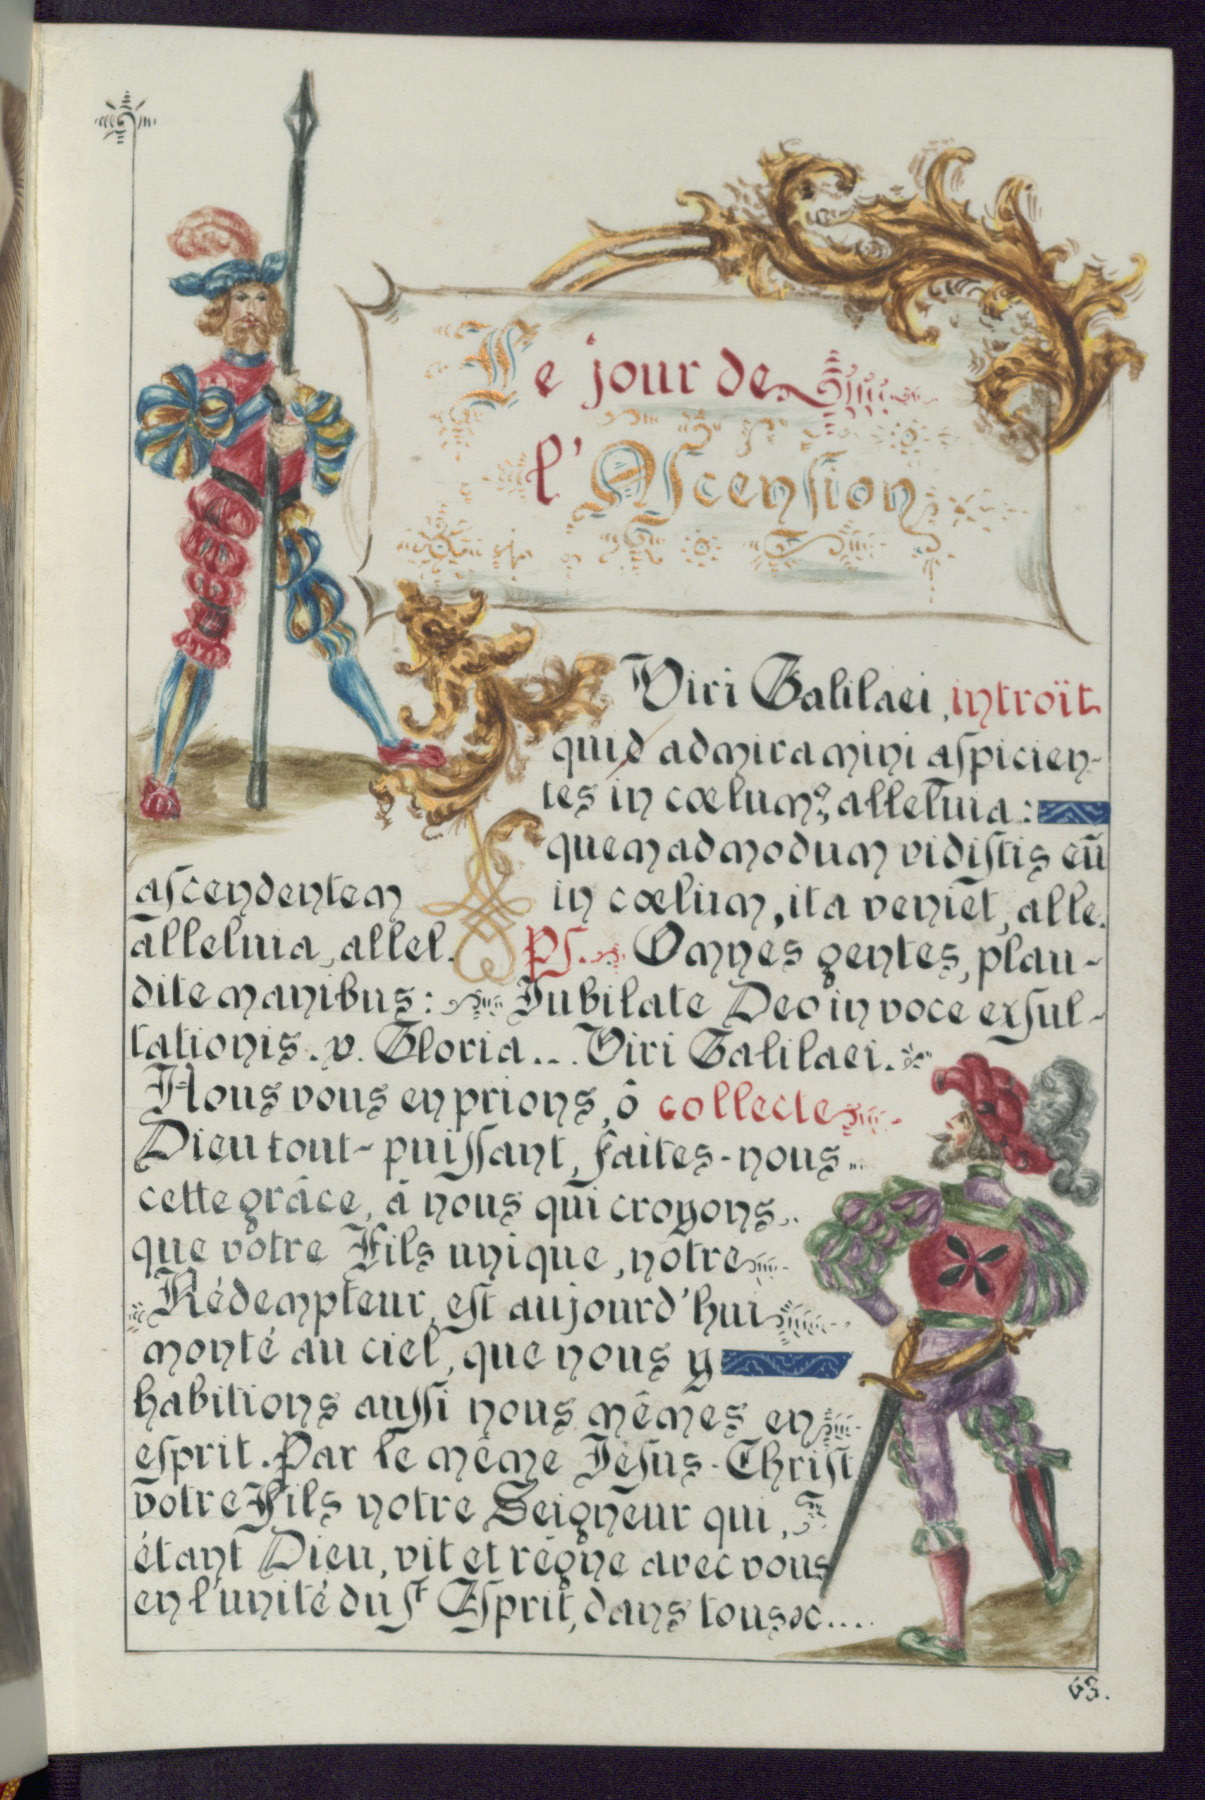 Le jour de
l'Ascension
Viri Galilaei, introït
quid admiramini aspicien-
tes in cœlum?, alleluia:
quemadmodum vidistis eū
ascendentem in cœlum, ita veniet, alle.
alleluia, allel. Ps. Omnes gentes, plau-
dite manibus: Jubilate Deo in voce exsul-
tationis. v. Gloria... Viri Galilaei.
Nous vous en prions, ô collecte
Dieu tout-puissant, faites-nous
cette grâce, à nous qui croyons
que votre Fils unique, notre
Rédempteur, est aujourd'hui
monté au ciel, que nous y
habitions aussi nous mêmes en
esprit. Par le même Jésus-Christ
votre Fils notre Seigneur qui,
étant Dieu, vit et règne avec vous
en l'unité du St Esprit, dans tous &c....